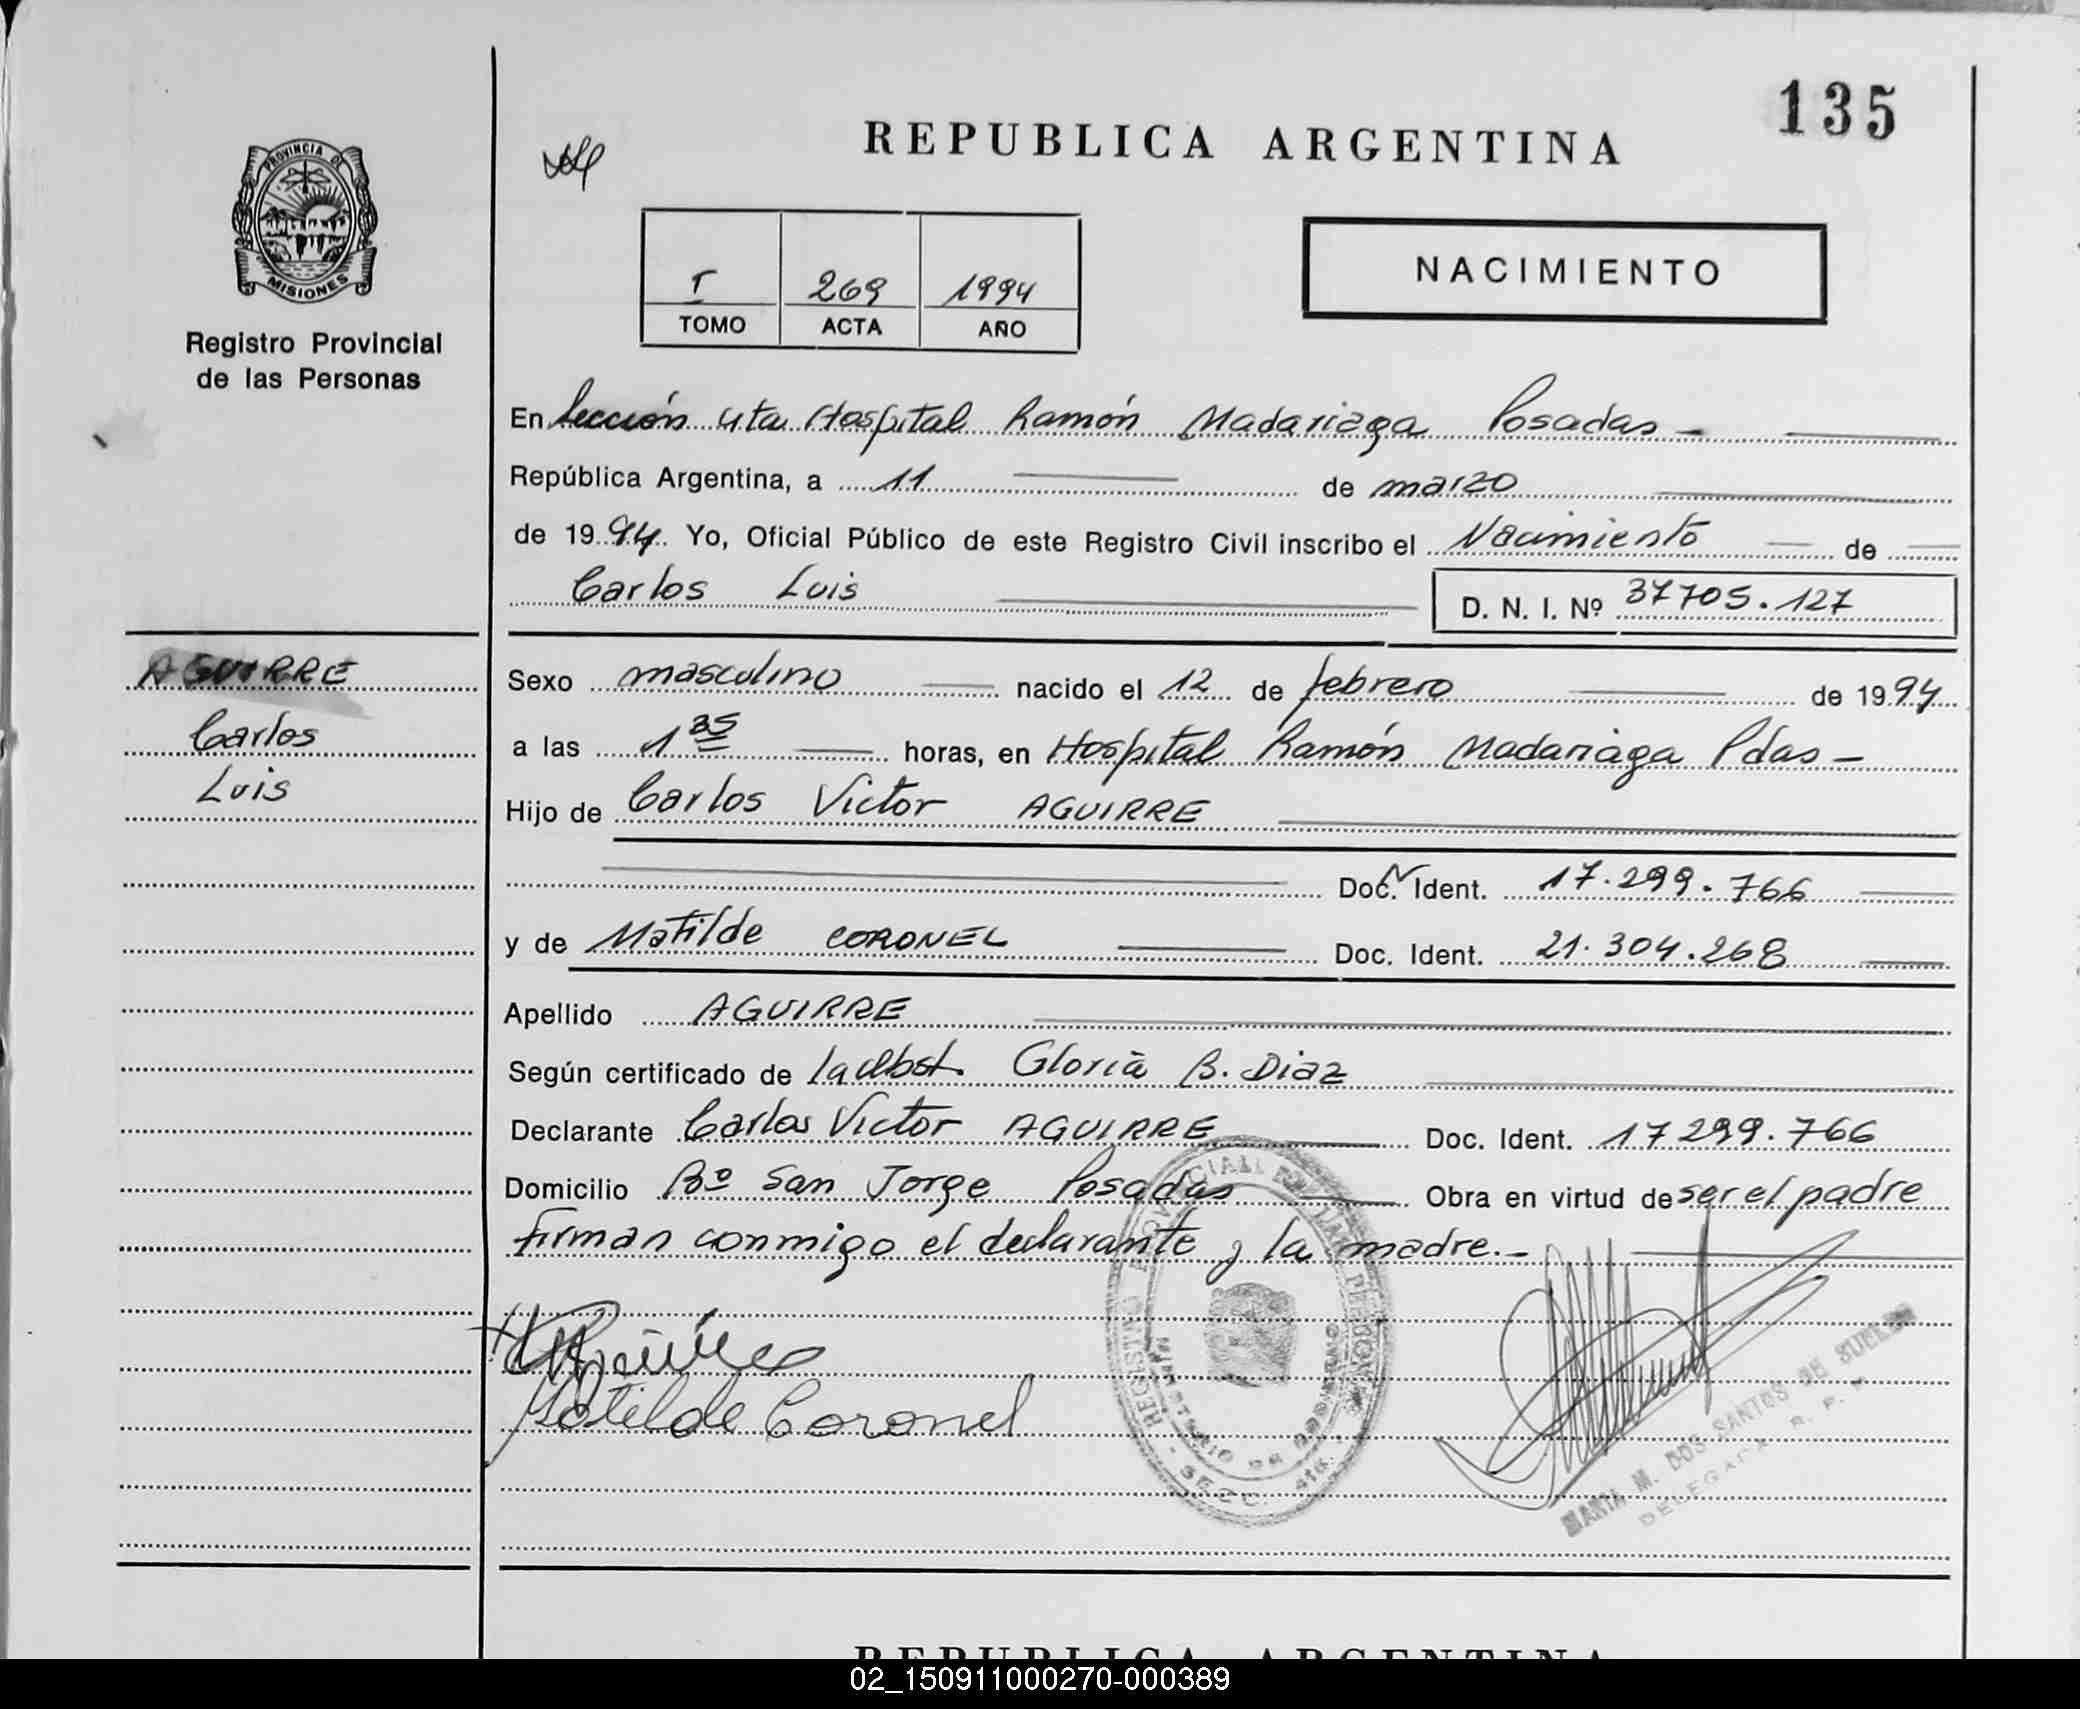 135
REPUBLICA ARGENTINA
PROVINCIA DE
MISIONES
Registro Provincial
de las Personas
I 269 1994
TOMO ACTA AÑO
NACIMIENTO
En Sección 4ta Hospital Ramón Madariaga Posadas -
República Argentina, a 11 de marzo
de 1994 Yo, Oficial Público de este Registro Civil inscribo el Nacimiento de
Carlos Luis D. N. I. Nº 37705.127
AGUIRRE
Carlos
Luis
Sexo masculino nacido el 12 de febrero de 1994
a las 1 35 horas, en Hospital Ramón Madariaga Pdas -
Hijo de Carlos Victor AGUIRRE
Doc. Ident. 17.299.766
y de Matilde CORONEL Doc. Ident. 21.304.268
Apellido AGUIRRE
Según certificado de la Obst. Gloria B. Diaz
Declarante Carlos Victor AGUIRRE Doc. Ident. 17299.766
Domicilio Bº San Jorge Posadas Obra en virtud de ser el padre
firman conmigo el declarante y la madre.-
Matilde Coronel
REGISTRO PROVINCIAL DE LAS PERSONAS
MINISTERIO DE
SECC. 4ta.
MARIA M. DOS SANTOS DE
DELEGADA R. P.
REPUBLICA ARGENTINA
02_150911000270-000389